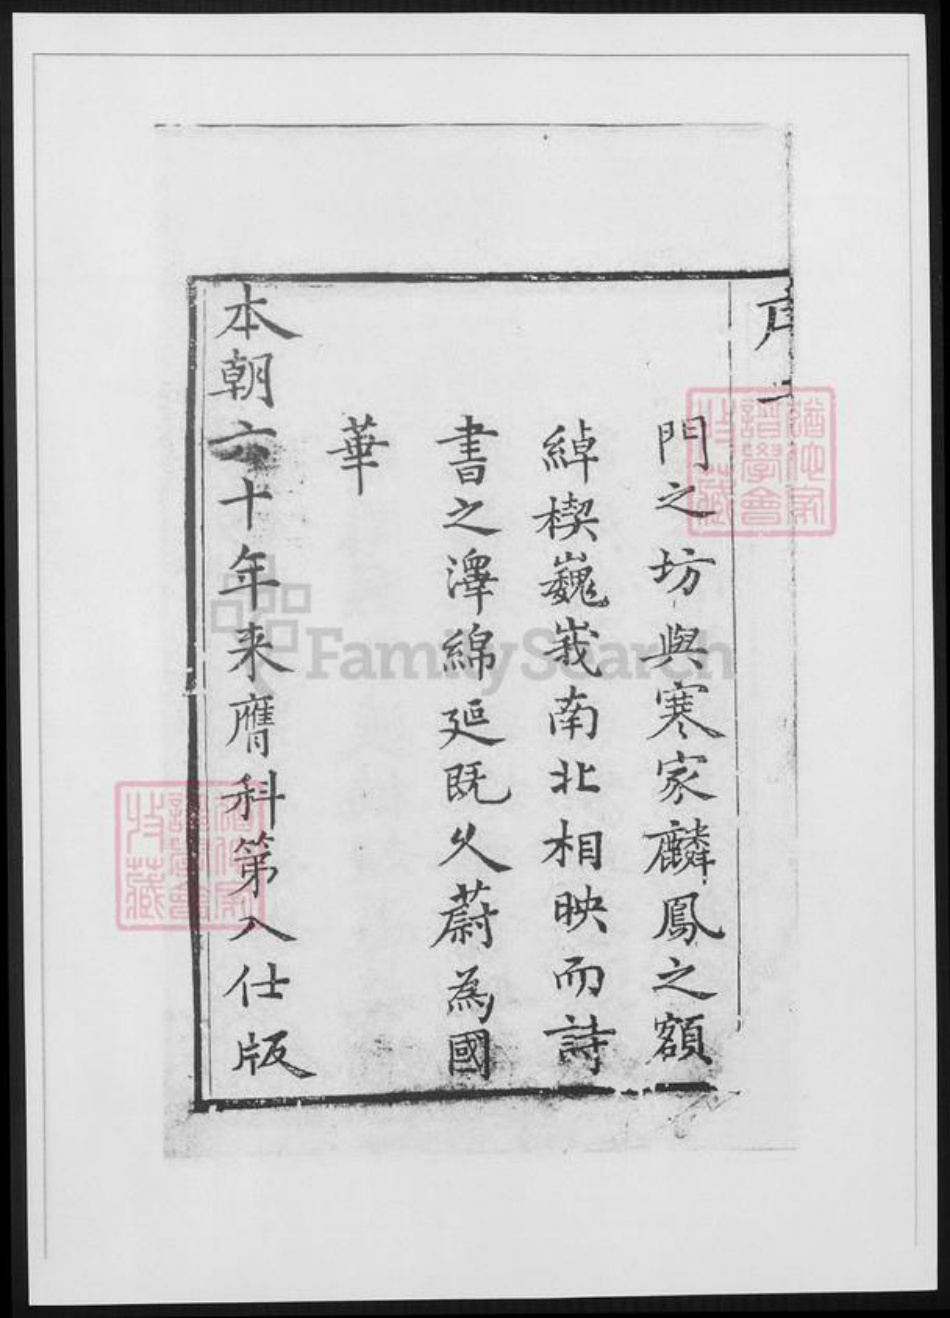 序
門之坊與寒家麟鳳之額
綽楔巍峩南北相映而詩
書之澤綿延既久蔚為國
華
本朝六十年来膺科第入仕版
譜學會
收藏
FamilySearch
譜學會
收藏